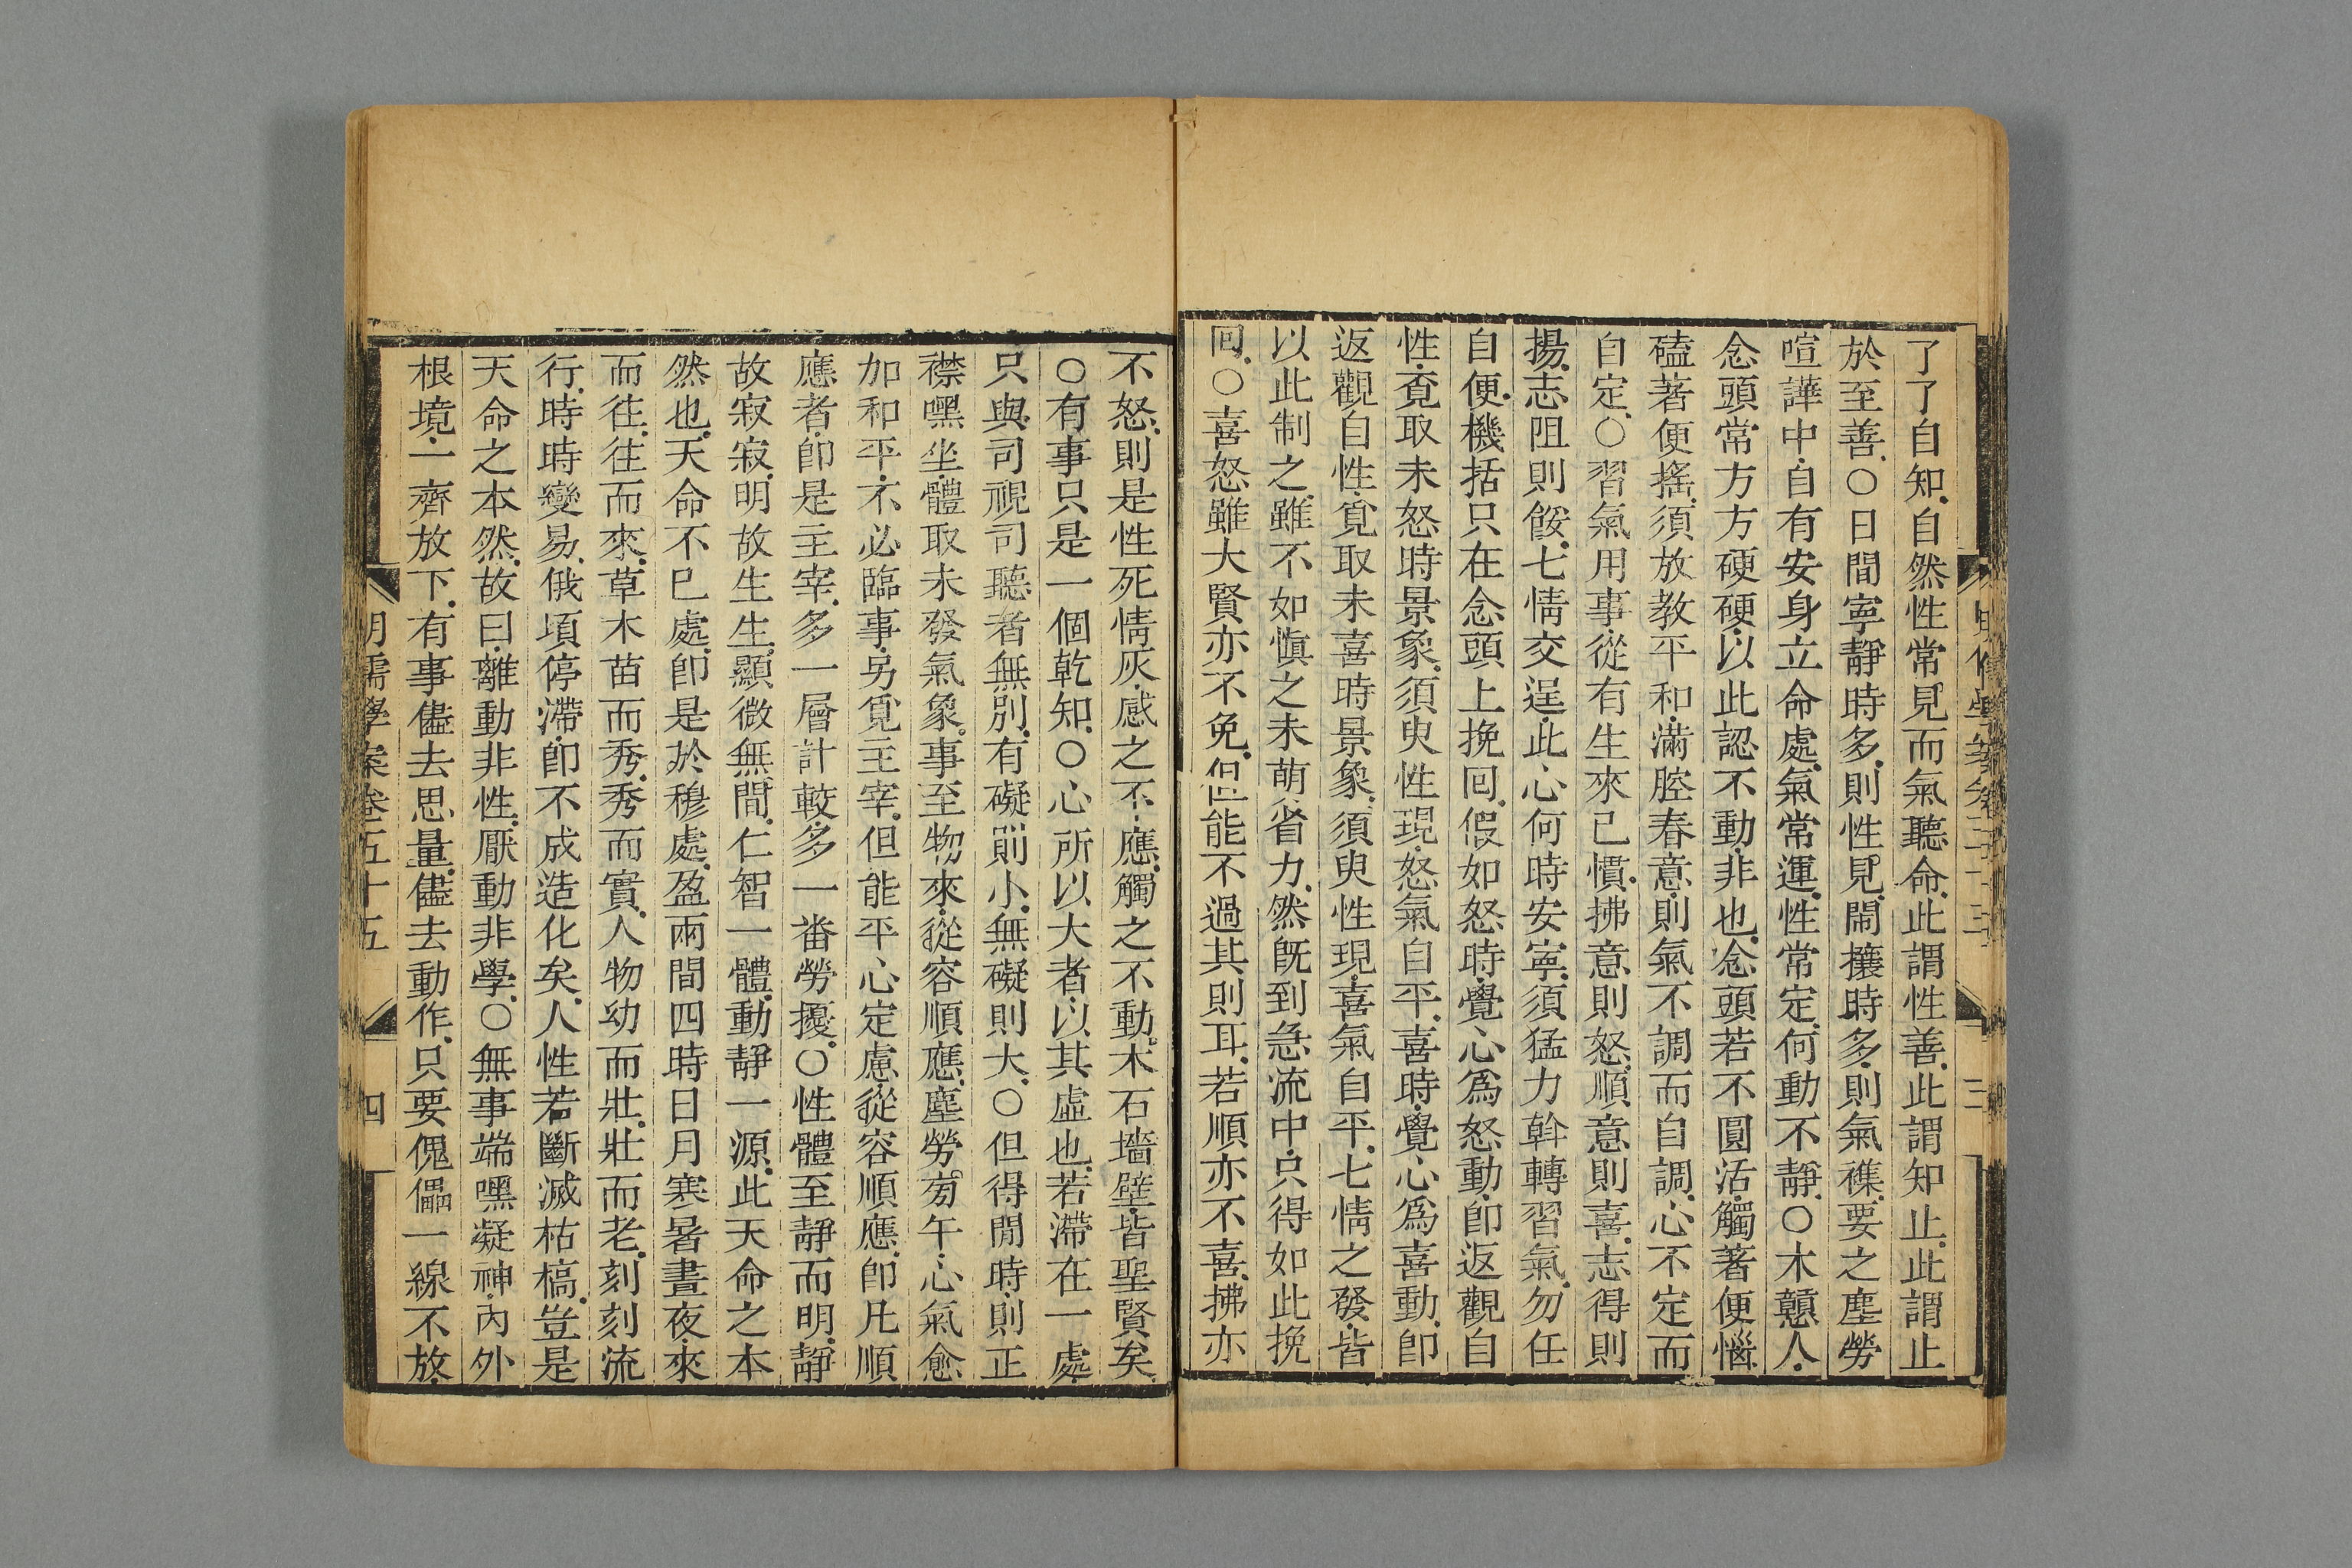 了了自知.自然性常見.而氣聽命.此謂性善.此謂知止.此謂止
於至善.○日間寧靜時多.則性見.鬧攘時多.則氣襍.要之塵勞
喧譁中.自有安身立命處.氣常運.性常定.何動不靜.○木戇人.
念頭常方方硬硬.以此認不動.非也.念頭若不圓活.觸著便惱.
磕著便搖.須放教平和.滿腔春意.則氣不調而自調.心不定而
自定.○習氣用事.從有生來已慣.拂意則怒.順意則喜.志得則
揚.志阻則餒.七情交逞.此心何時安寧.須猛力斡轉習氣.勿任
自便.機括只在念頭上挽回.假如怒時.覺心爲怒動.卽返觀自
性.覔取未怒時景象.須臾性現.怒氣自平.喜時.覺心爲喜動.卽
返觀自性.覓取未喜時景象.須臾性現.喜氣自平.七情之發.皆
以此制之.雖不如愼之未萌省力.然旣到急流中.只得如此挽
回.○喜怒雖大賢亦不免.但能不過其則耳.若順亦不喜.拂亦
不怒.則是性死情灰.感之不應.觸之不動.木石墻壁.皆聖賢矣.
○有事只是一個乾知.○心所以大者.以其虛也.若滯在一處.
只與司視司聽者無別.有礙則小.無礙則大.○但得閒時.則正
襟嘿坐.體取未發氣象.事至物來.從容順應.塵勞旁午.心氣愈
加和平.不必臨事.另覓主宰.但能平心定慮.從容順應.卽凡順
應者.卽是主宰.多一層計較.多一番勞擾.○性體至靜而明.靜
故寂寂.明故生生.顯微無間.仁智一體.動靜一源.此天命之本
然也.天命不已處.卽是於穆處.盈兩間四時日月寒暑晝夜.來
而往.往而來.草木苗而秀.秀而實.人物幼而壯.壯而老.刻刻流
行.時時變易.俄頃停滯.卽不成造化矣.人性若斷滅枯槁.豈是
天命之本然.故曰.離動非性.厭動非學.○無事端嘿凝神.內外
根境.一齊放下.有事儘去思量.儘去動作.只要傀儡一線不放.
明儒學案卷五十五
四